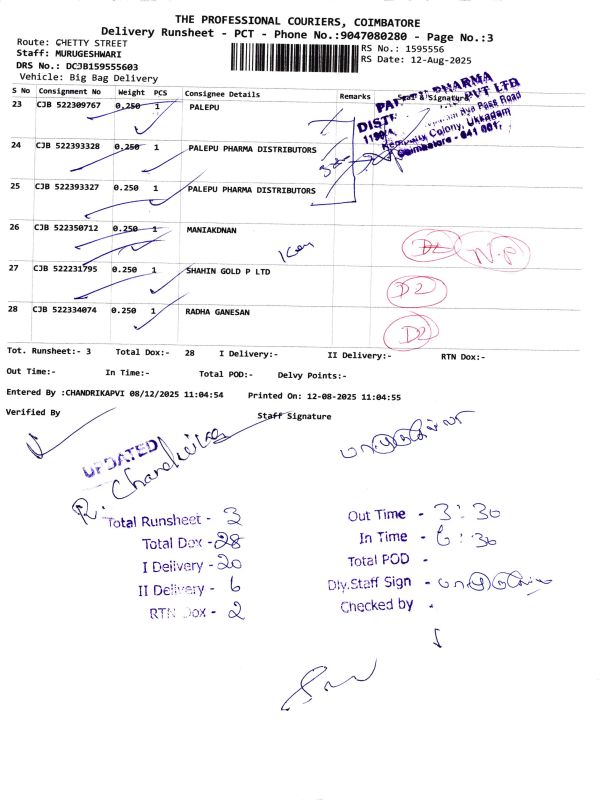 THE PROFESSIONAL COURIERS, COIMBATORE
Delivery Runsheet - PCT - Phone No.:9047080280 - Page No.:3
Route: CHETTY STREET
RS No.: 1595556
Staff: MURUGESHWARI
RS Date: 12-Aug-2025
DRS No.: DCJB159555603
Vehicle: Big Bag Delivery
S No Consignment No Weight PCS Consignee Details Remarks Seal & Signature
23 CJB 522309767 0.250 1 PALEPU
24 CJB 522393328 0.250 1 PALEPU PHARMA DISTRIBUTORS
25 CJB 522393327 0.250 1 PALEPU PHARMA DISTRIBUTORS
PHARMA
PVT LTD
Bye Pass Road
Colony, Ukkadam
Coimbatore - 641 001
26 CJB 522350712 0.250 1 MANIAKDNAN D2 N.P
27 CJB 522231795 0.250 1 SHAHIN GOLD P LTD D2
28 CJB 522334074 0.250 1 RADHA GANESAN D2
Tot. Runsheet:- 3 Total Dox:- 28 I Delivery:- II Delivery:- RTN Dox:-
Out Time:- In Time:- Total POD:- Delvy Points:-
Entered By :CHANDRIKAPVI 08/12/2025 11:04:54 Printed On: 12-08-2025 11:04:55
Verified By Staff Signature
UPDATED
R. Chandrika
Total Runsheet - 3
Total Dox - 28
I Delivery - 20
II Delivery - 6
RTN Dox - 2
Out Time - 3:30
In Time - 6:30
Total POD -
Dly.Staff Sign -
Checked by -